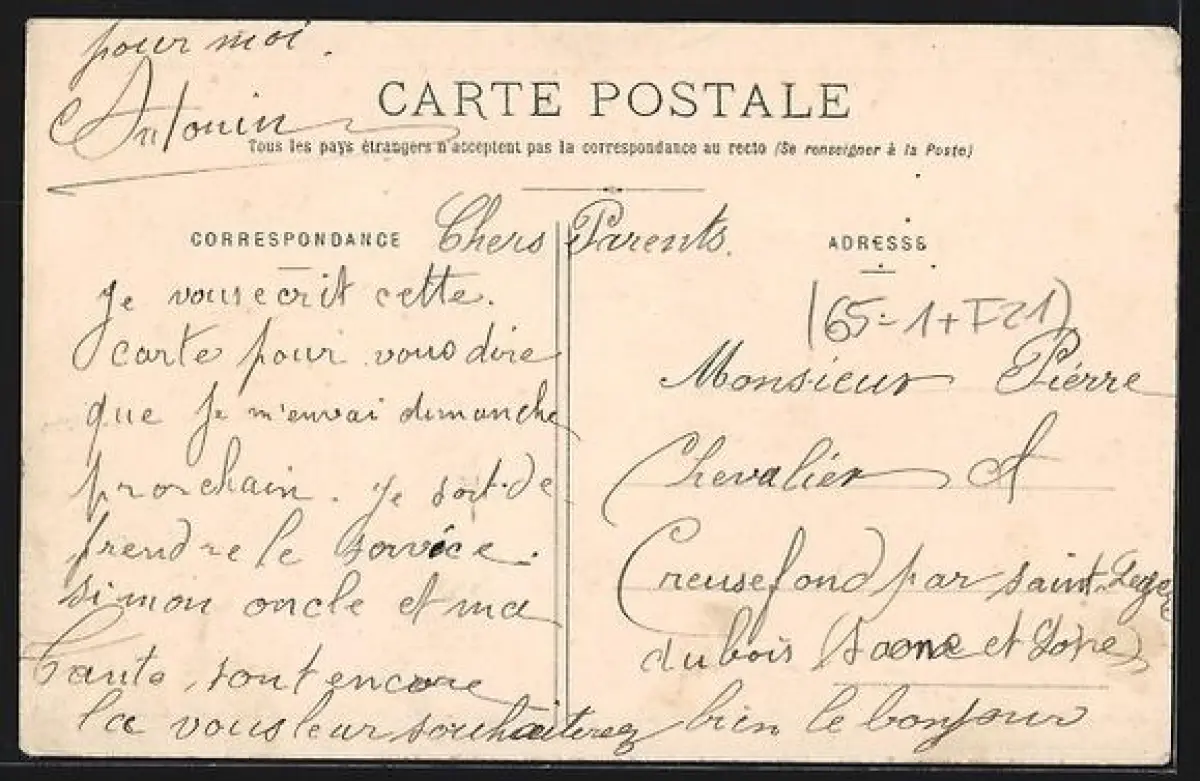 pour moi.
Antonin
CARTE POSTALE
Tous les pays étrangers n'acceptent pas la correspondance au recto (Se renseigner à la Poste)
CORRESPONDANCE
Chers Parents.
ADRESSE
Je vous ecrit cette.
carte pour vous dire
que Je m'envai dimanche
prorchain. Je sort. de
prendre le service.
si mon oncle et ma
tante, sont encore
la vous leur souhaiterez bien le bonjour
(65-1+T21)
Monsieur Piérre
Chevaliér A
Creusefond par saint Leger
du bois (Saone et Loire)